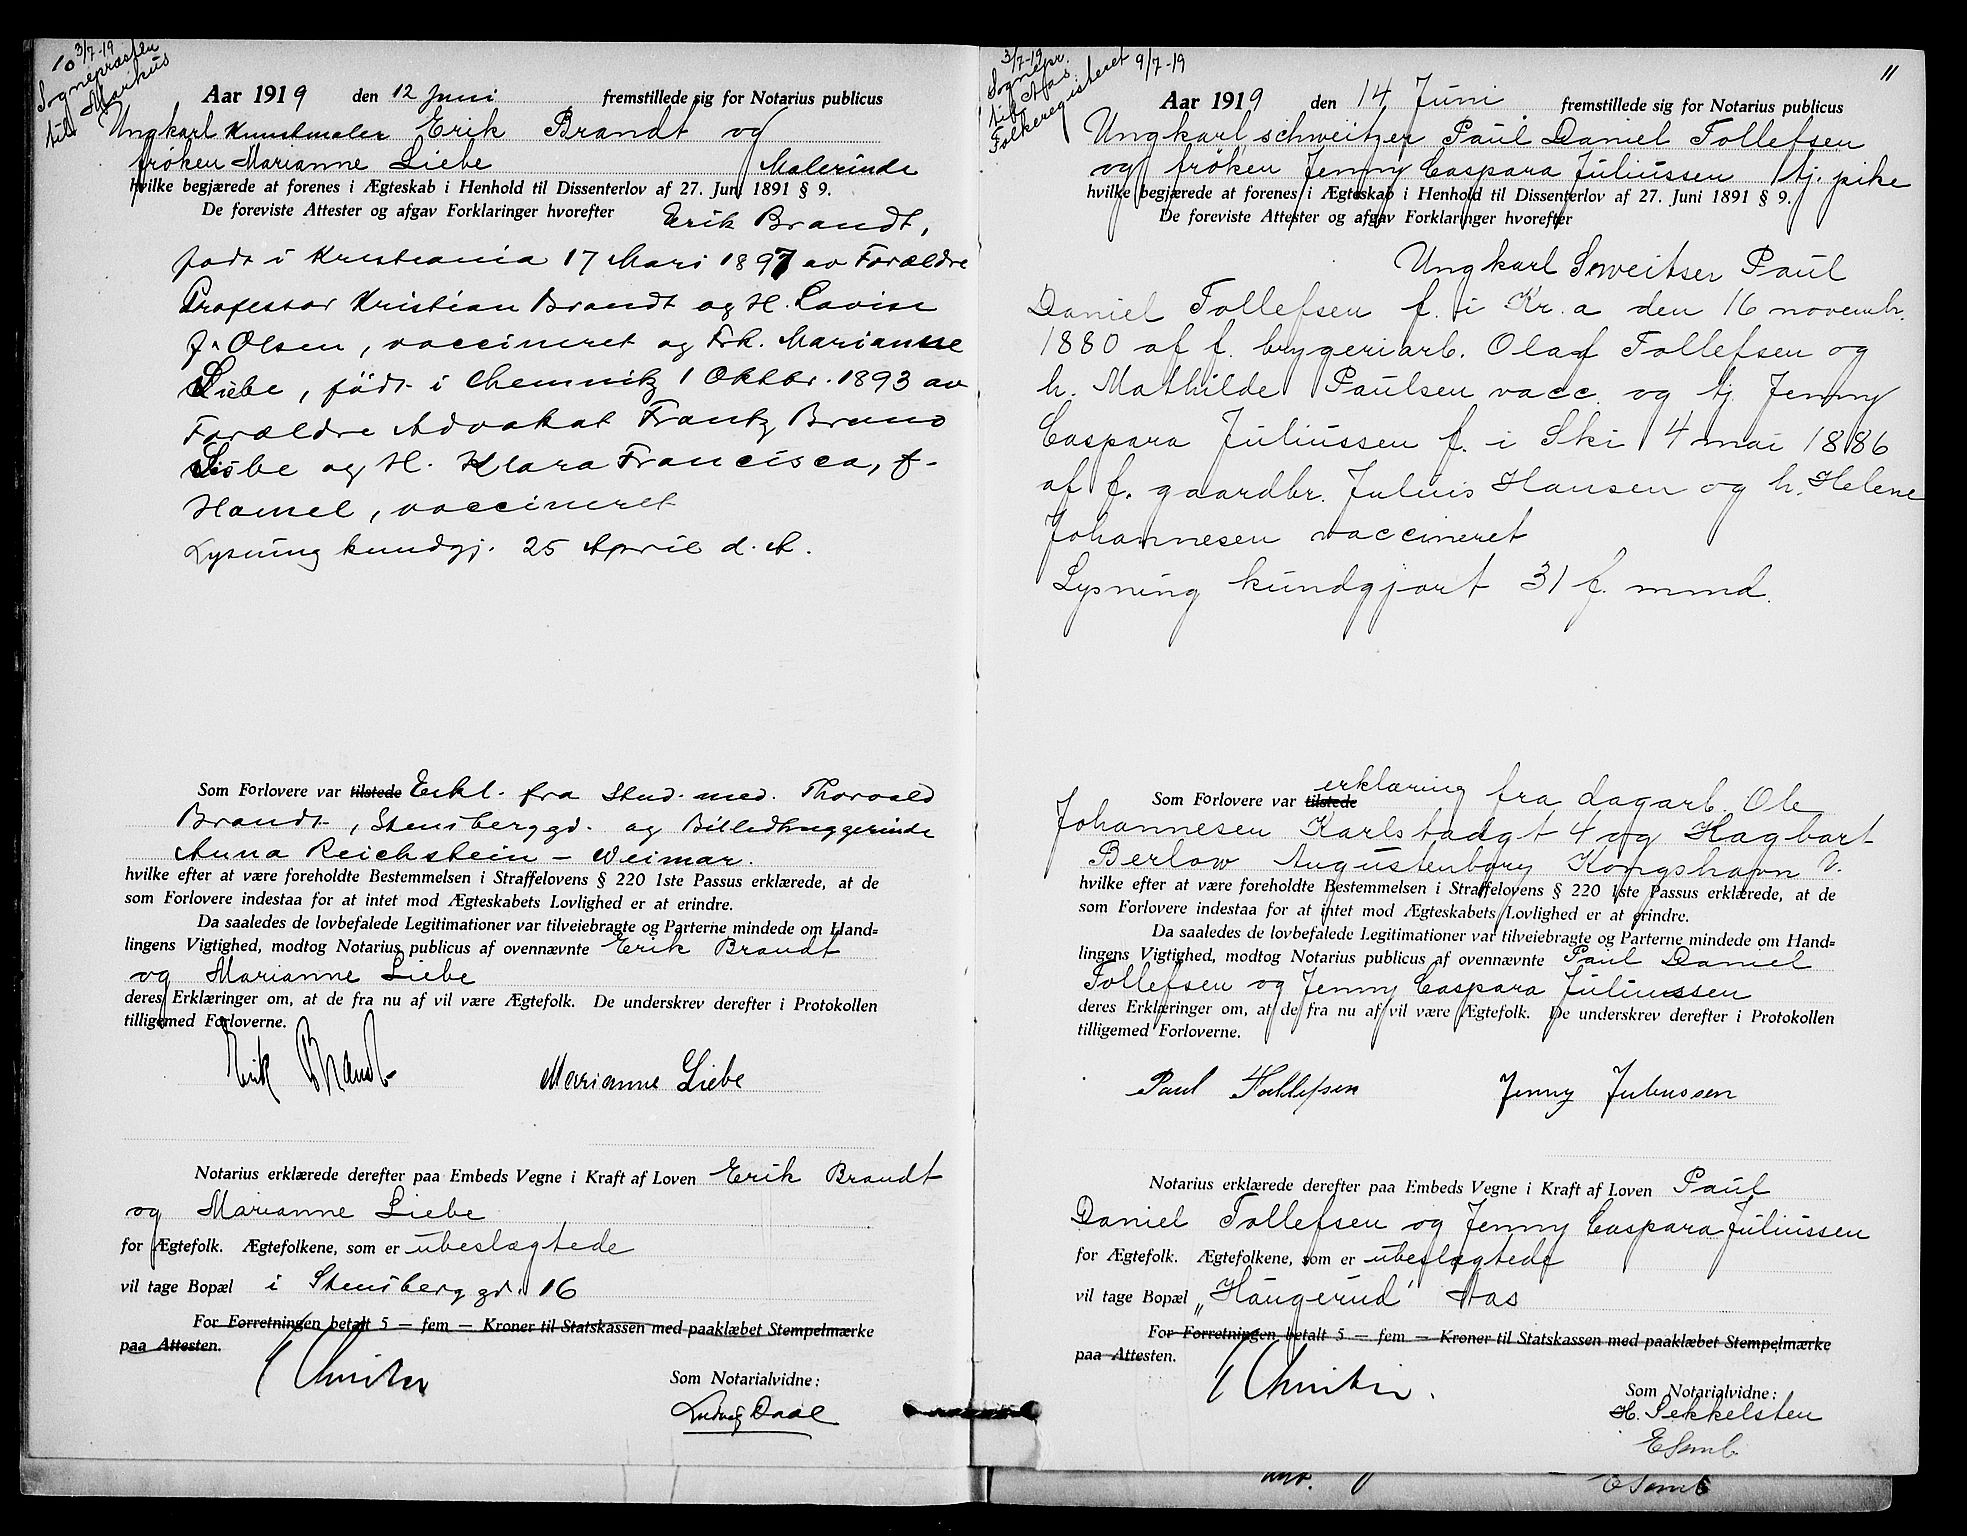 10
3/7-19
Sogneprasten
til Markus
Aar 1919 den 12 Juni fremstillede sig for Notarius publicus
Ungkarl Kunstmaler Erik Brandt og
frøken Marianne Liebe Malerinde
hvilke begjærede at forenes i Ægteskab i Henhold til Dissenterlov af 27. Juni 1891 § 9.
De foreviste Attester og afgav Forklaringer hvorefter Erik Brandt,
født i Kristiania 17 Mars 1897 av Forældre
Professor Kristian Brandt og H. Lovise
f. Olsen, vaccineret og Frk. Marianne
Liebe, født i Chemnitz 1 Oktbr. 1893 av
Forældre Advokat Frantz Bruno
Liebe og H. Klara Francisca, f.
Hamel, vaccineret
Lysning kundgj. 25 April d. A.
Som Forlovere var tilstede Erkl. fra Stud. med. Thorvald
Brandt, Stensberggd. og Billedhuggerinde
Anna Reichstein - Weimar.
hvilke efter at være foreholdte Bestemmelsen i Straffelovens § 220 1ste Passus erklærede, at de
som Forlovere indestaa for at intet mod Ægteskabets Lovlighed er at erindre.
Da saaledes de lovbefalede Legitimationer var tilveiebragte og Parterne mindede om Hand-
lingens Vigtighed, modtog Notarius publicus af ovennævnte Erik Brandt
og Marianne Liebe
deres Erklæringer om, at de fra nu af vil være Ægtefolk. De underskrev derefter i Protokollen
tilligemed Forloverne.
Erik Brandt Marianne Liebe
Notarius erklærede derefter paa Embeds Vegne i Kraft af Loven Erik Brandt
og Marianne Liebe
for Ægtefolk. Ægtefolkene, som er ubeslægtede
vil tage Bopæl i Stensberggd. 16
For Forretningen betalt 5 — fem — Kroner til Statskassen med paaklæbet Stempelmærke
paa Attesten.
Som Notarialvidne:
Ludvig Daae
11
3/7-19
Sognepr.
til Aas
Folkeregisteret 9/7-19
Aar 1919 den 14 Juni fremstillede sig for Notarius publicus
Ungkarl schweitzer Paul Daniel Tollefsen
og frøken Jenny Caspara Juliussen tj. pike
hvilke begjærede at forenes i Ægteskab i Henhold til Dissenterlov af 27. Juni 1891 § 9.
De foreviste Attester og afgav Forklaringer hvorefter
Ungkarl Sweitser Paul
Daniel Tollefsen f. i Kr.a den 16 novembr.
1880 af f. brygeriarb. Olaf Tollefsen og
h. Mathilde Paulsen vacc. og tj. Jenny
Caspara Juliussen f. i Ski 4 mai 1886
af f. gaardbr. Julius Hansen og h. Helene
Johannesen vaccineret
Lysning kundgjort 31 f. mmd.
Som Forlovere var tilstede erklæring fra dagarb. Ole
Johannesen Karlstadgt 4 og Hagbart
Berlow Augustenborg Kongshavn
hvilke efter at være foreholdte Bestemmelsen i Straffelovens § 220 1ste Passus erklærede, at de
som Forlovere indestaa for at intet mod Ægteskabets Lovlighed er at erindre.
Da saaledes de lovbefalede Legitimationer var tilveiebragte og Parterne mindede om Hand-
lingens Vigtighed, modtog Notarius publicus af ovennævnte Paul Daniel
Tollefsen og Jenny Caspara Juliussen
deres Erklæringer om, at de fra nu af vil være Ægtefolk. De underskrev derefter i Protokollen
tilligemed Forloverne.
Paul Tollefsen Jenny Juliussen
Notarius erklærede derefter paa Embeds Vegne i Kraft af Loven Paul
Daniel Tollefsen og Jenny Caspara Juliussen
for Ægtefolk. Ægtefolkene, som er ubeslægtede
vil tage Bopæl „Haugerud" Aas
For Forretningen betalt 5 — fem — Kroner til Statskassen med paaklæbet Stempelmærke
paa Attesten.
Som Notarialvidne:
H. Sekkelsten
E Semb
E Semb